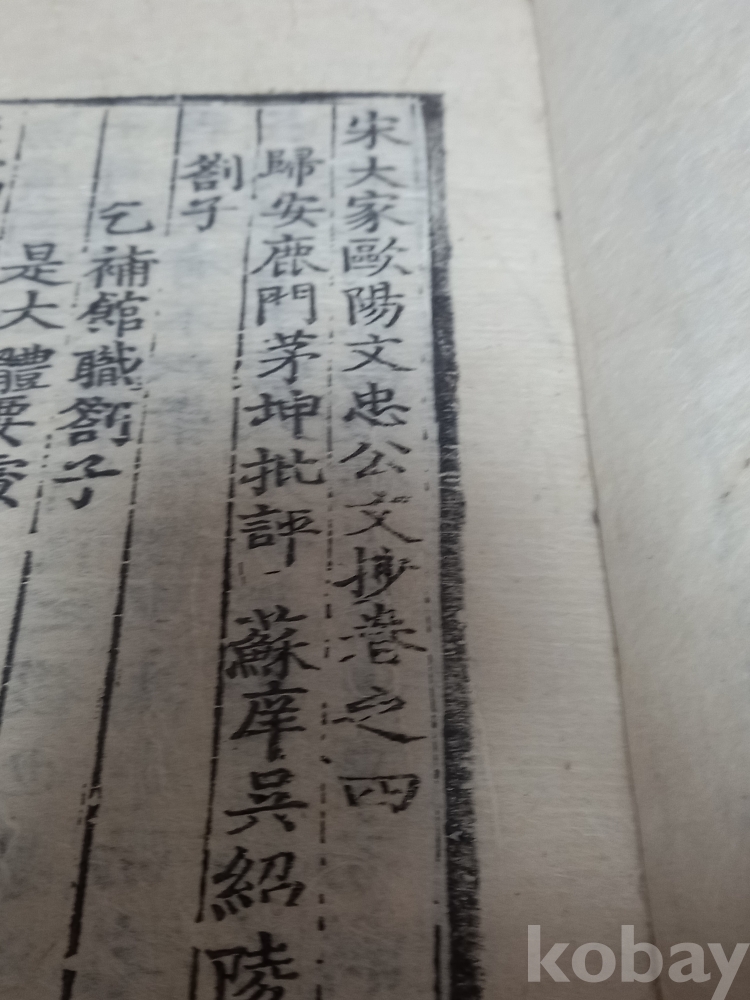 宋大家歐陽文忠公文抄卷之四
歸安鹿門茅坤批評 蘇庠吳紹陵
劄子
乞補館職劄子
是大體要
kobay